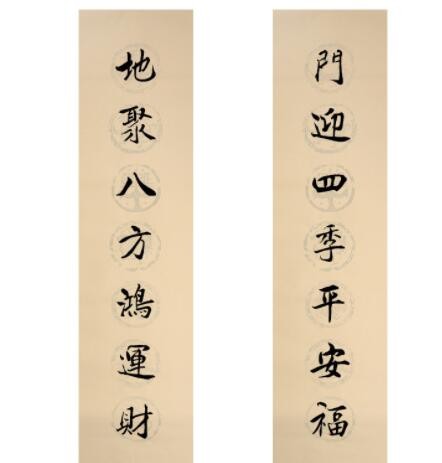 門迎四季平安福
地聚八方鴻運財